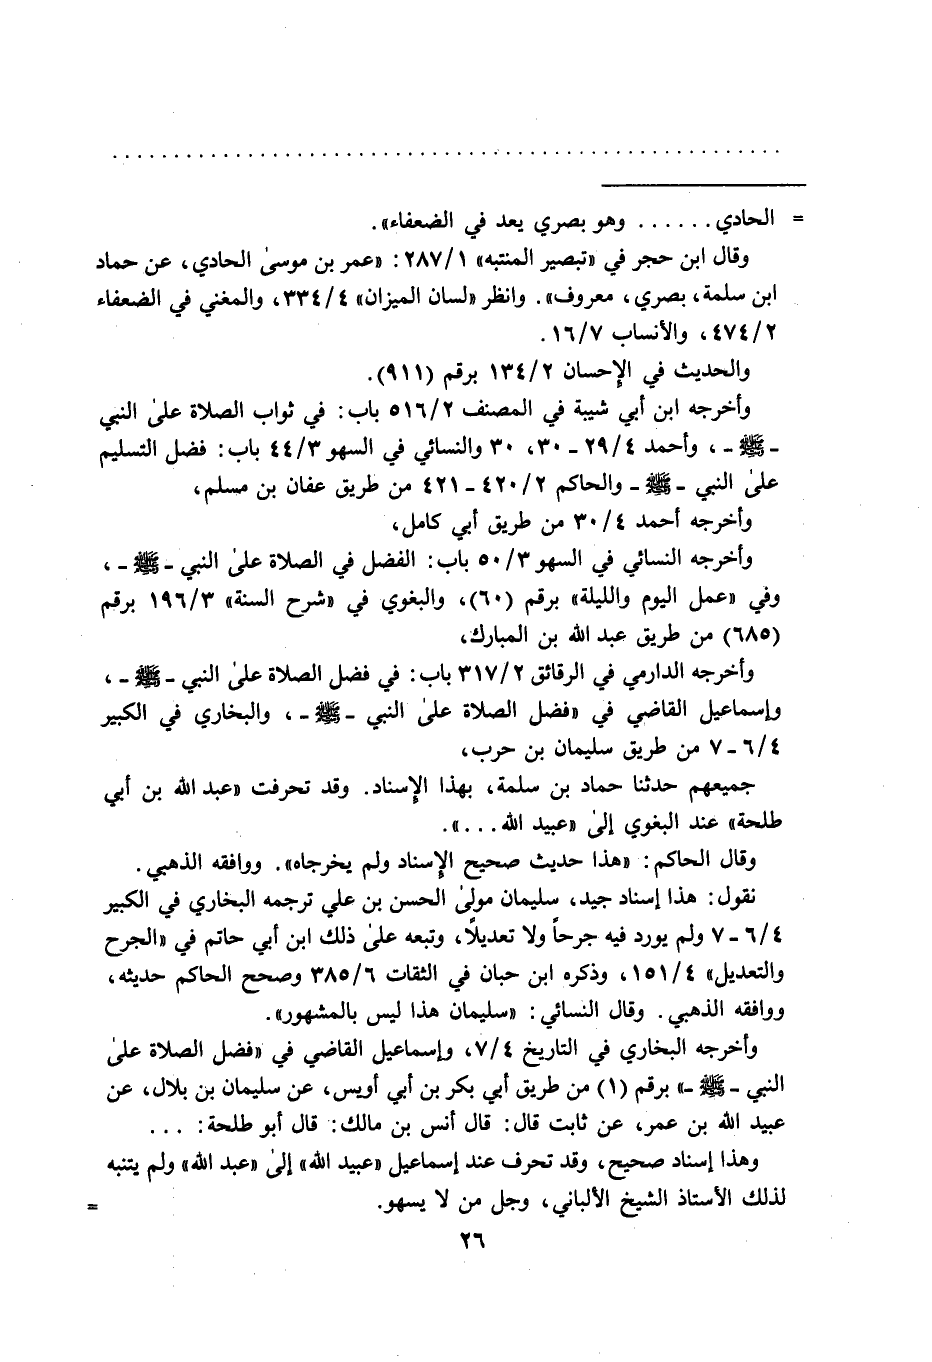 . . . . . . . . . . . . . . . . . . . . . . . . . . . . . . . . . . . . . . . . . . . . . . . . . .
= الحادي . . . . . . وهو بصري يعد في الضعفاء».
وقال ابن حجر في «تبصير المنتبه» ٢٨٧/١: «عمر بن موسىٰ الحادي، عن حماد
ابن سلمة، بصري، معروف». وانظر «لسان الميزان» ٣٣٤/٤، والمغني في الضعفاء
٤٧٤/٢، والأنساب ١٦/٧.
والحديث في الإحسان ١٣٤/٢ برقم (٩١١).
وأخرجه ابن أبي شيبة في المصنف ٥١٦/٢ باب: في ثواب الصلاة علىٰ النبي
ـ ﷺ ـ ، وأحمد ٢٩/٤ ـ ٣٠، ٣٠ والنسائي في السهو ٤٤/٣ باب: فضل التسليم
علىٰ النبي ـ ﷺ ـ والحاكم ٤٢٠/٢ ـ ٤٢١ من طريق عفان بن مسلم،
وأخرجه أحمد ٣٠/٤ من طريق أبي كامل،
وأخرجه النسائي في السهو ٥٠/٣ باب: الفضل في الصلاة علىٰ النبي ـ ﷺ ـ،
وفي «عمل اليوم والليلة» برقم (٦٠)، والبغوي في «شرح السنة» ١٩٦/٣ برقم
(٦٨٥) من طريق عبد الله بن المبارك،
وأخرجه الدارمي في الرقائق ٣١٧/٢ باب: في فضل الصلاة علىٰ النبي ـ ﷺ ـ،
وإسماعيل القاضي في «فضل الصلاة علىٰ النبي ـ ﷺ ـ، والبخاري في الكبير
٦/٤ ـ ٧ من طريق سليمان بن حرب،
جميعهم حدثنا حماد بن سلمة، بهذا الإسناد. وقد تحرفت «عبد الله بن أبي
طلحة» عند البغوي إلىٰ «عبيد الله...».
وقال الحاكم: «هذا حديث صحيح الإسناد ولم يخرجاه». ووافقه الذهبي.
نقول: هذا إسناد جيد، سليمان مولىٰ الحسن بن علي ترجمه البخاري في الكبير
٦/٤ ـ ٧ ولم يورد فيه جرحاً ولا تعديلًا، وتبعه علىٰ ذلك ابن أبي حاتم في «الجرح
والتعديل» ١٥١/٤، وذكره ابن حبان في الثقات ٣٨٥/٦ وصحح الحاكم حديثه،
ووافقه الذهبي. وقال النسائي: «سليمان هذا ليس بالمشهور».
وأخرجه البخاري في التاريخ ٧/٤، وإسماعيل القاضي في «فضل الصلاة علىٰ
النبي ـ ﷺ ـ» برقم (١) من طريق أبي بكر بن أبي أويس، عن سليمان بن بلال، عن
عبيد الله بن عمر، عن ثابت قال: قال أنس بن مالك: قال أبو طلحة: ...
وهذا إسناد صحيح، وقد تحرف عند إسماعيل «عبيد الله» إلىٰ «عبد الله» ولم يتنبه
لذلك الأستاذ الشيخ الألباني، وجل من لا يسهو. =
٢٦